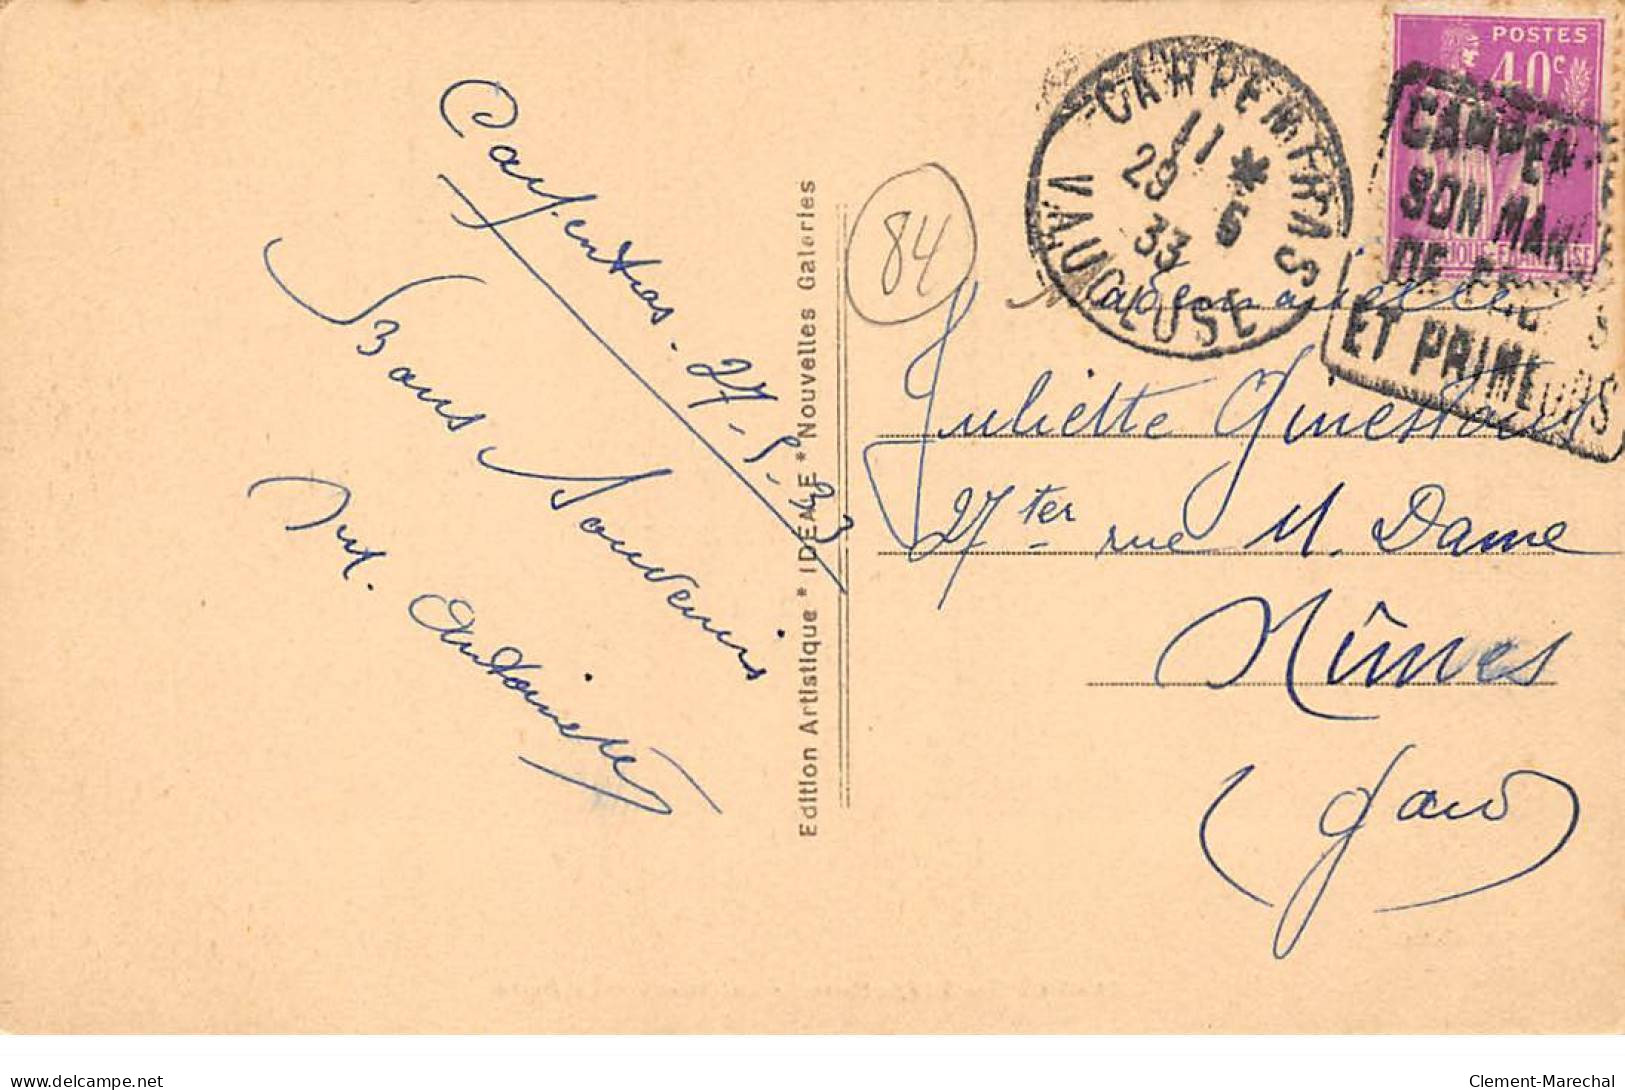 Carpentras - 27-5-33
Bons Souvenirs
Antoinette
Edition Artistique * IDEALE * Nouvelles Galeries
84
CARPENTRAS
11 *
29 5
33
VAUCLUSE
POSTES
40c
RÉPUBLIQUE FRANÇAISE
CARPEN
SON MAR
DE
ET PRIMEURS
Mademoiselle
Juliette
27 ter rue N. Dame
Nîmes
(Gard)
delcampe.net
Clement-Marechal